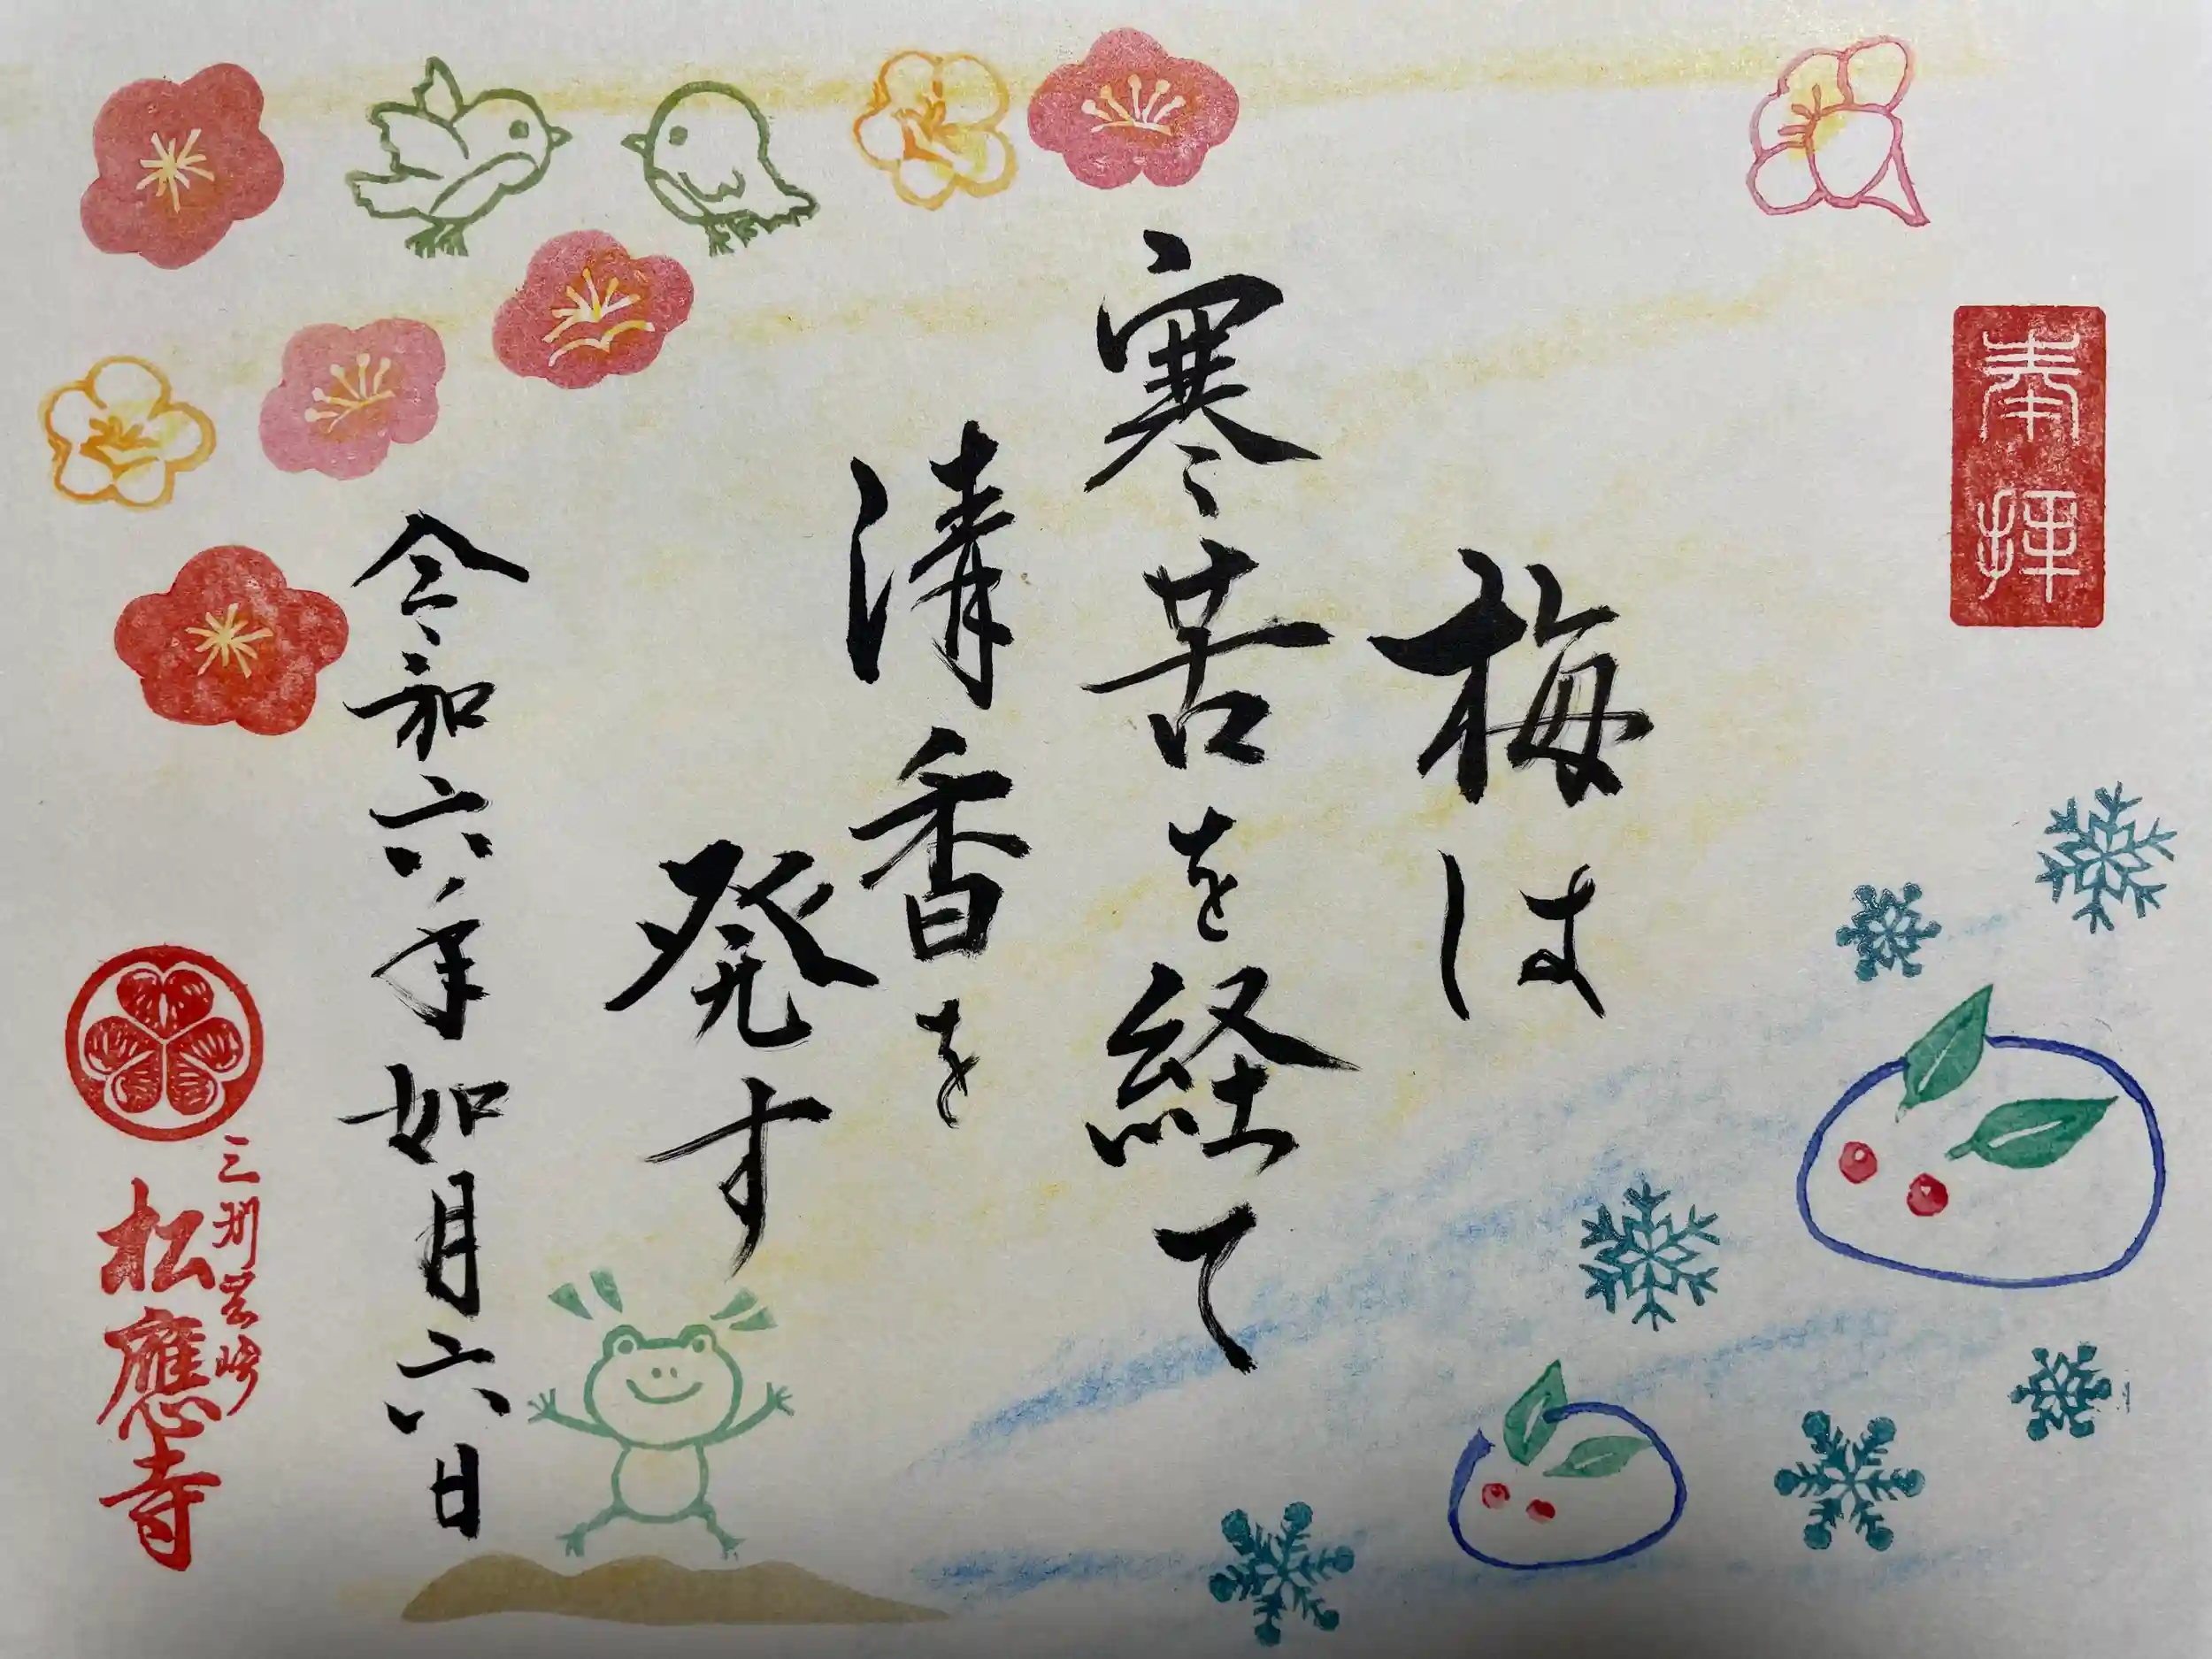 奉拝
梅は
寒苦を経て
清香を
発す
令和六年如月六日
三州岡崎
松應寺